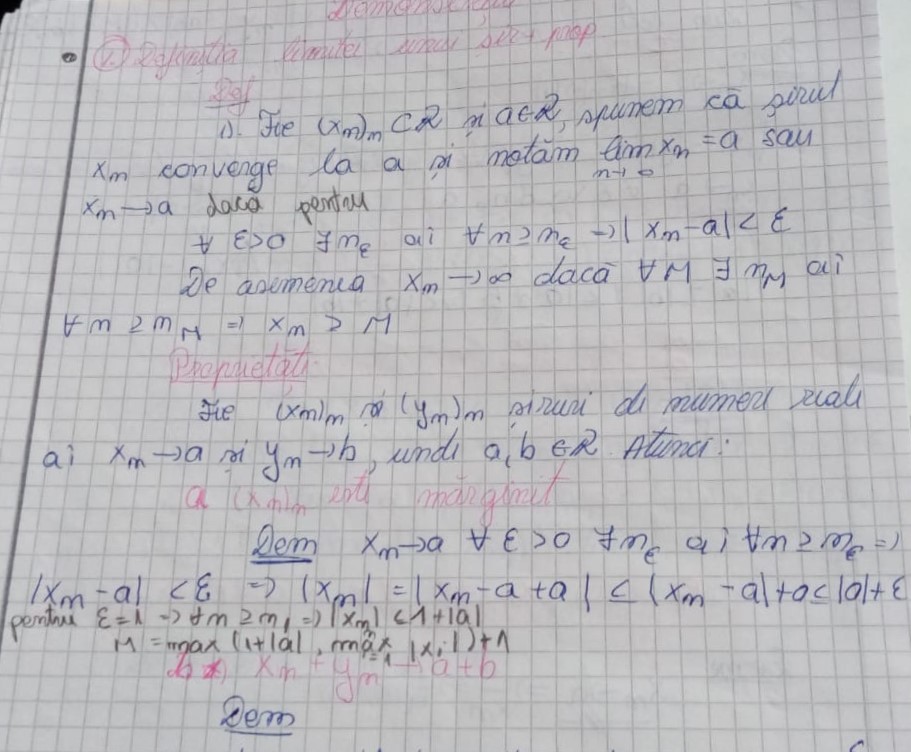 Demonstrații
2. Definiția limitei unui șir + prop
Def
1). Fie (xn)n ⊂ ℝ și a∈ℝ, spunem că șirul
xn converge la a și notăm lim xn = a sau
n→∞
xn → a dacă pentru
∀ ε>0 ∃ nε aî ∀ n ≥ nε ⇒ | xn-a| < ε
De asemenea xn → ∞ dacă ∀ M ∃ nM aî
∀ n ≥ nM ⇒ xn > M
Proprietăți
Fie (xn)n și (yn)n șiruri de numere reale
aî xn → a și yn → b, unde a, b ∈ ℝ. Atunci:
a (xn)n este mărginit
Dem xn → a ∀ ε > 0 ∃ nε aî ∀ n ≥ nε ⇒
|xn - a| < ε ⇒ |xn| = | xn - a + a | ≤ |xn - a| + a ≤ |a| + ε
pentru ε = 1 ⇒ ∀ n ≥ n1 ⇒ |xn| < 1 + |a|
M = max (1+|a|, max |xi|) + 1
b) xn + yn → a + b
Dem